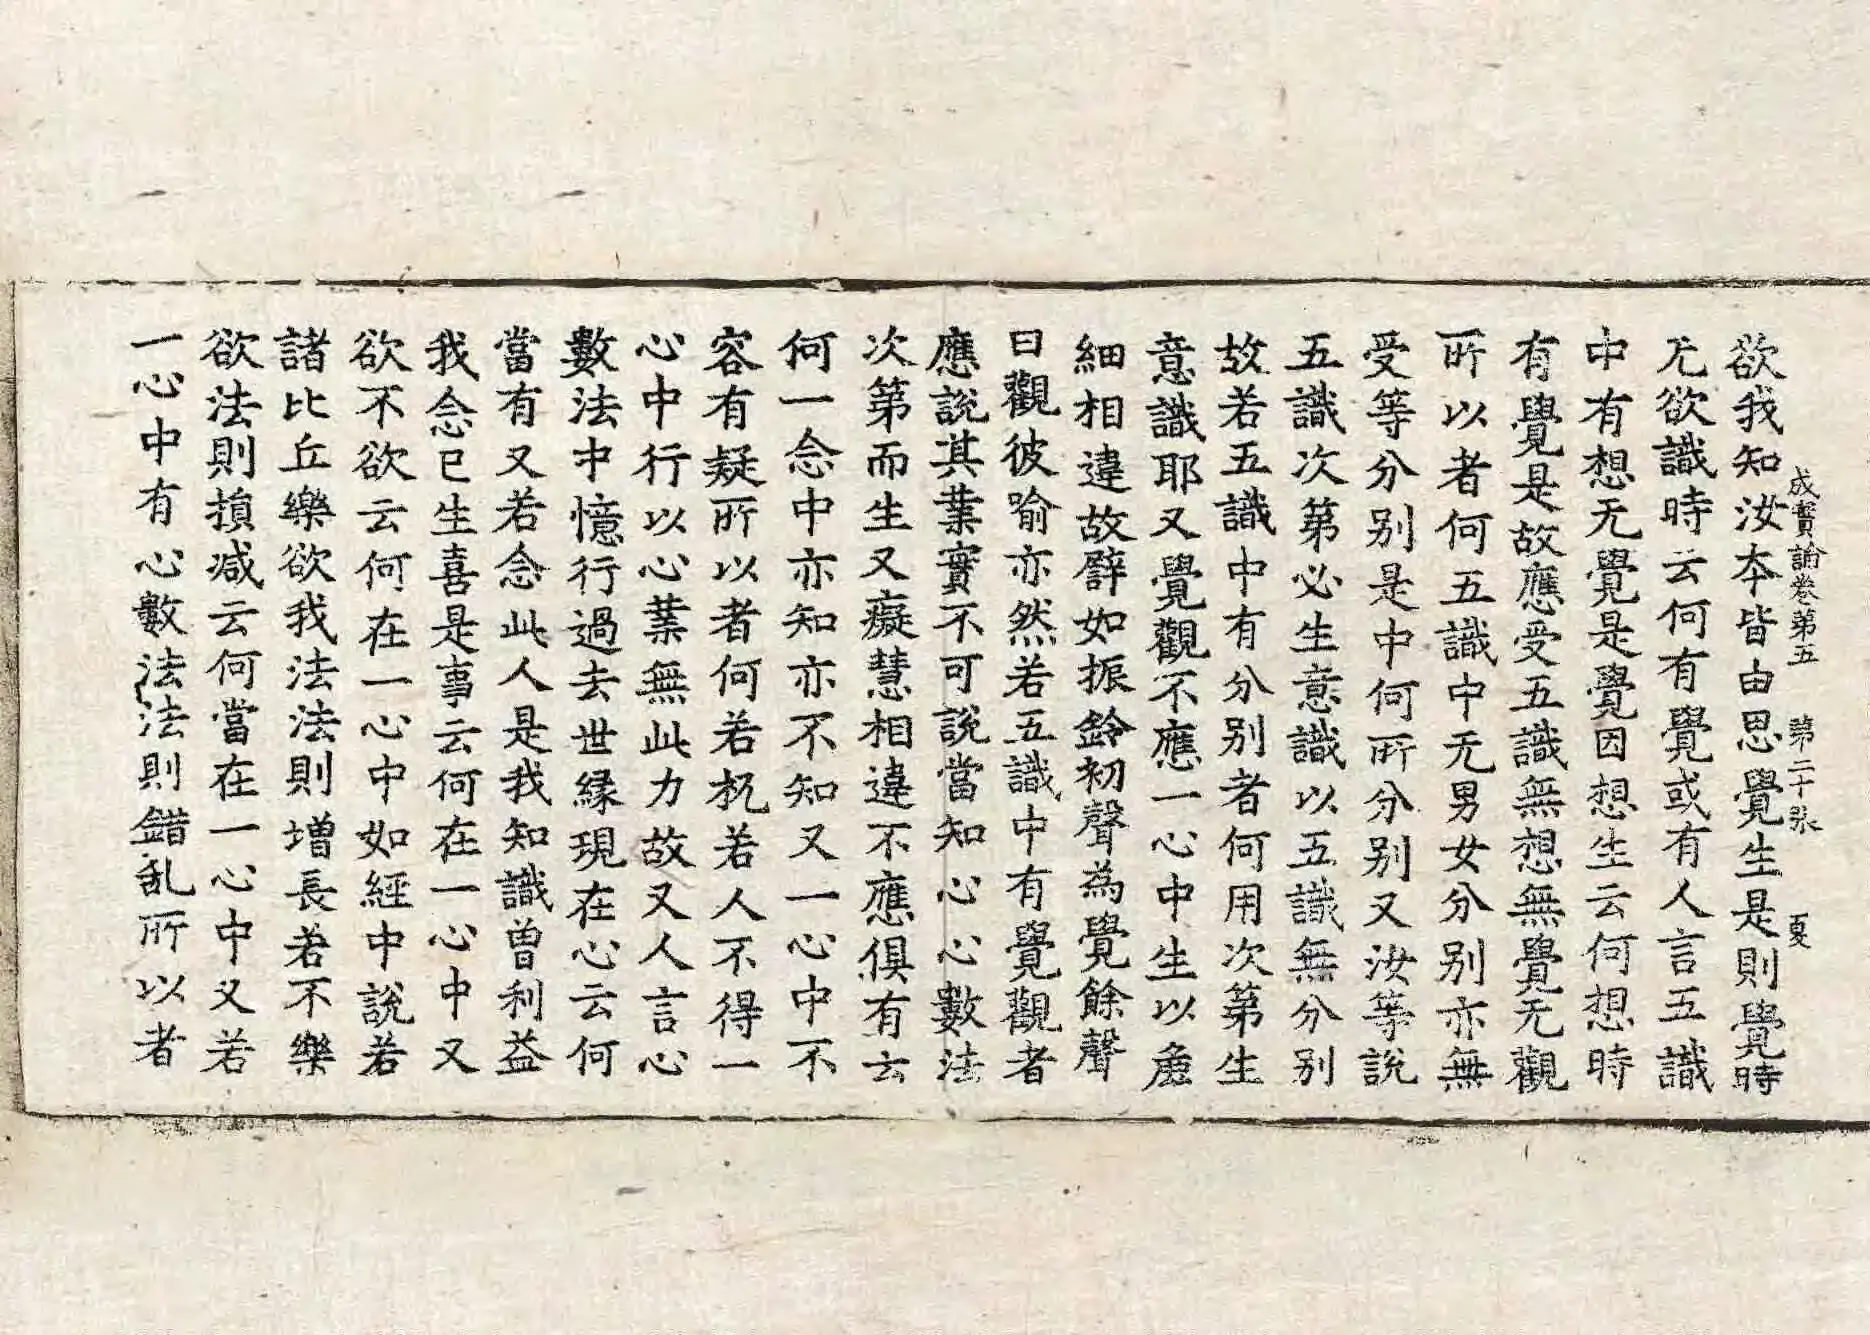 成實論卷第五 第二十張 夏
欲我知汝本皆由思覺生是則覺時
无欲識時云何有覺或有人言五識
中有想无覺是覺因想生云何想時
有覺是故應受五識無想無覺无觀
所以者何五識中无男女分别亦無
受等分别是中何所分别又汝等說
五識次第必生意識以五識無分别
故若五識中有分别者何用次第生
意識耶又覺觀不應一心中生以麁
細相違故譬如振鈴初聲為覺餘聲
曰觀彼喻亦然若五識中有覺觀者
應說其業實不可說當知心心數法
次第而生又癡慧相違不應俱有云
何一念中亦知亦不知又一心中不
容有疑所以者何若杌若人不得一
心中行以心業無此力故又人言心
數法中憶行過去世緣現在心云何
當有又若念此人是我知識曾利益
我念已生喜是事云何在一心中又
欲不欲云何在一心中如經中說若
諸比丘樂欲我法法則增長若不樂
欲法則損减云何當在一心中又若
一心中有心數法法則錯乱所以者